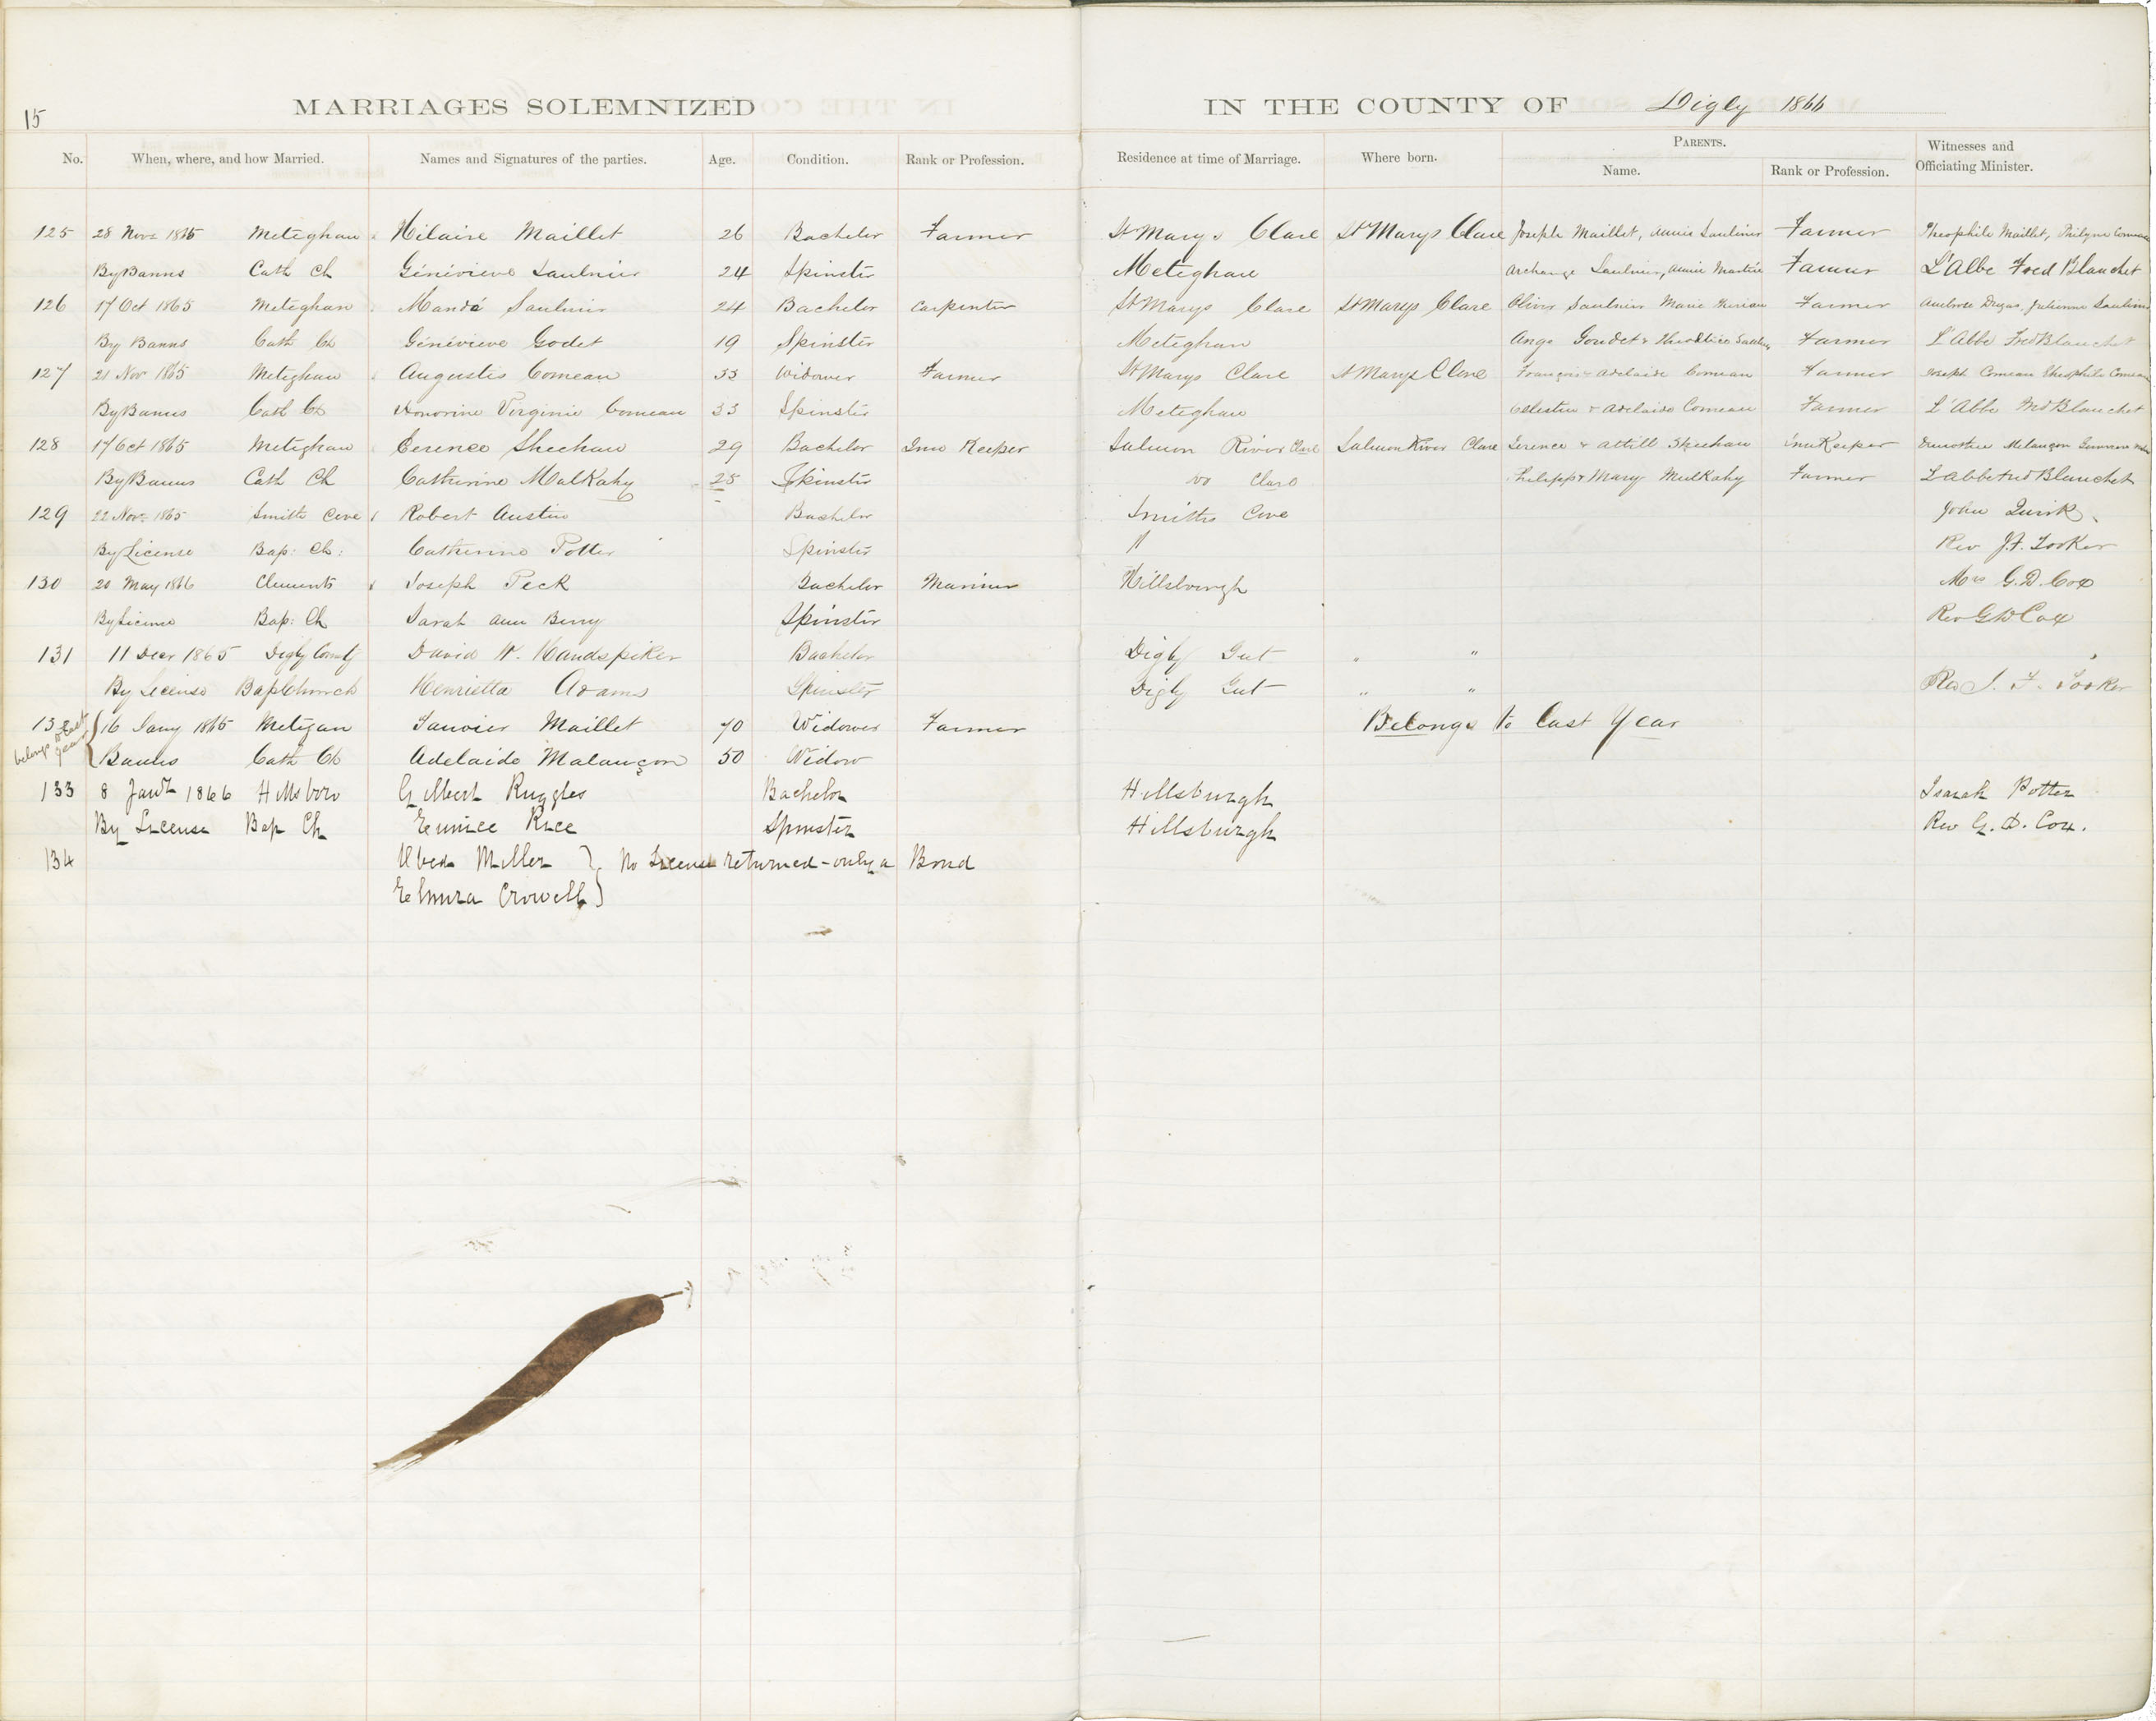 15
MARRIAGES SOLEMNIZED IN THE COUNTY OF Digby 1866
No. When, where, and how Married. Names and Signatures of the parties. Age. Condition. Rank or Profession. Residence at time of Marriage. Where born. PARENTS. Name. Rank or Profession. Witnesses and Officiating Minister.
125 28 Novr 1865 Meteghan Hilaire Maillet 26 Bachelor Farmer St Marys Clare St Marys Clare Joseph Maillet, Annie Saulnier Farmer Theophile Maillet, Comeau
By Banns Cath Ch Généviève Saulnier 24 Spinster Meteghan Archange Saulnier, Annie Martin Farmer L'Abbe Fred Blanchet
126 17 Oct 1865 Meteghan Mandé Saulnier 24 Bachelor Carpenter St Marys Clare St Marys Clare Oliver Saulnier Marie Farmer Ambrose Dugas, Julienne Saulnier
By Banns Cath Ch Généviève Godet 19 Spinster Meteghan Ange Goudet & Saulnier Farmer L'Abbe Fred Blanchet
127 21 Nov 1865 Meteghan Augustis Comeau 33 Widower Farmer St Marys Clare St Marys Clare François & Adelaide Comeau Farmer Joseph Comeau Theophile Comeau
By Banns Cath Ch Honorine Virginie Comeau 33 Spinster Meteghan Celestin & Adelaide Comeau Farmer L'Abbe Fred Blanchet
128 17 Oct 1865 Meteghan Terence Sheehan 29 Bachelor Inn Keeper Salmon River Clare Salmon River Clare Terence & Sheehan Inn Keeper Melançon
By Banns Cath Ch Catherine MulKahy 25 Spinster Do Clare Philipp & Mary MulKahy Farmer L'abbe Fred Blanchet
129 22 Novr 1865 Smiths Cove Robert Austin Bachelor Smiths Cove John Quirk
By License Bap: Ch: Catherine Potter Spinster " Rev J. F. Tooker
130 20 May 1866 Clements Joseph Peck Bachelor Mariner Hillsburgh Mrs G. D. Cox
By License Bap: Ch Sarah Ann Berry Spinster Rev G D Cox
131 11 Decr 1865 Digby County David W. Handspiker Bachelor Digby Gut " "
By License Bap Church Henrietta Adams Spinster Digby Gut " " Rev J. F. Tooker
132 16 Jany 1865 Metegan Janvier Maillet 70 Widower Farmer Belongs to last Year
belongs to last year Banns Cath Ch Adelaide Malançon 50 Widow
133 8 Jany 1866 Hillsboro Gilbert Ruggles Bachelor Hillsburgh Isaiah Potter
By License Bap Ch Eunice Rice Spinster Hillsburgh Rev G. D. Cox.
134 Obed Miller } No License returned - only a Bond
Elmira Crowell }